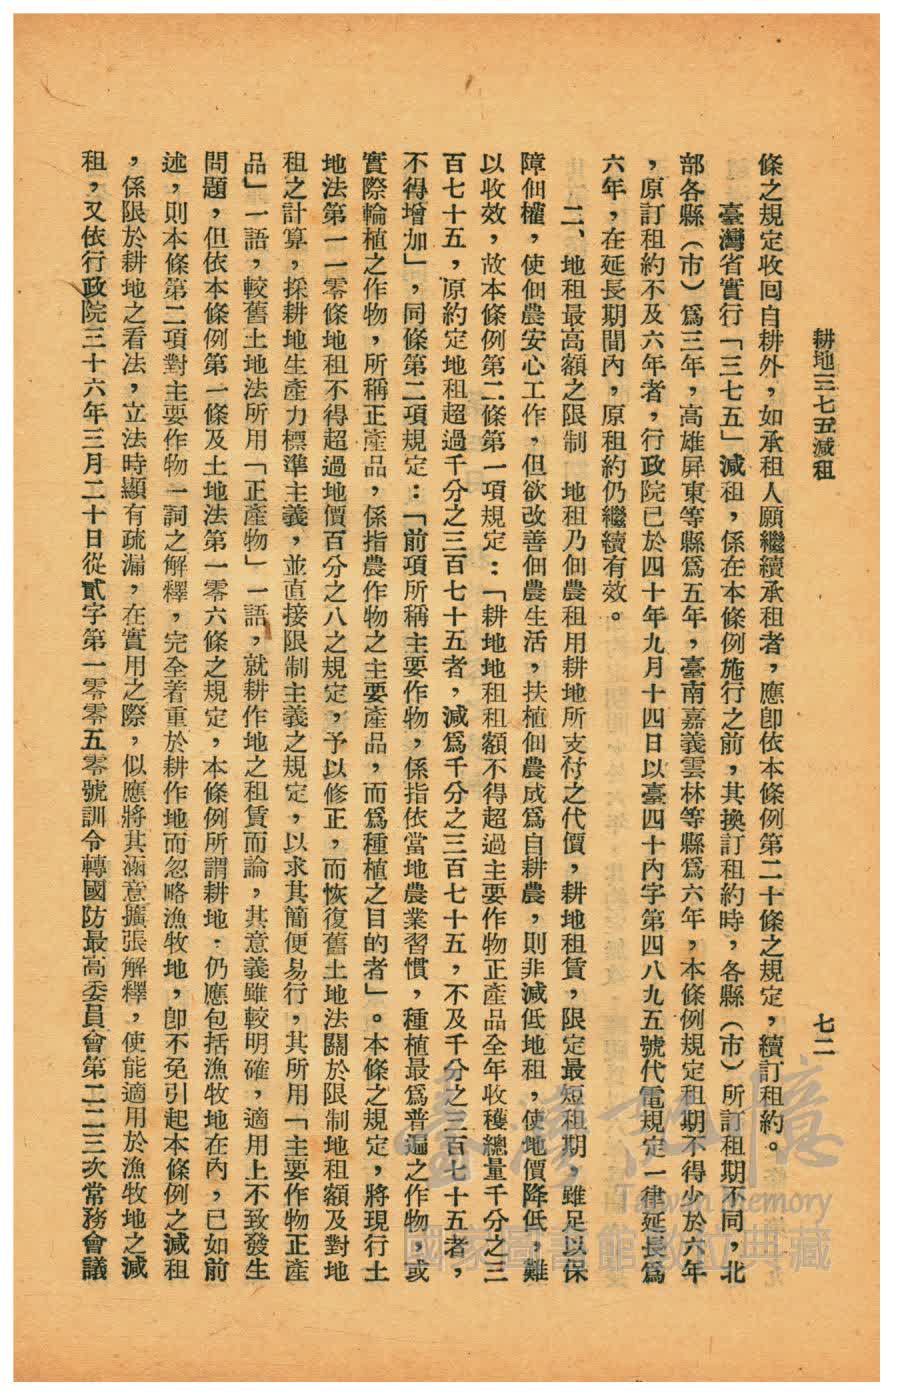 耕地三七五減租
七二
條之規定收回自耕外，如承租人願繼續承租者，應卽依本條例第二十條之規定，續訂租約。
臺灣省實行「三七五」減租，係在本條例施行之前，其換訂租約時，各縣（市）所訂租期不同，北
部各縣（市）爲三年，高雄屏東等縣爲五年，臺南嘉義雲林等縣爲六年，本條例規定租期不得少於六年
，原訂租約不及六年者，行政院已於四十年九月十四日以臺四十內字第四八九五號代電規定一律延長爲
六年，在延長期間內，原租約仍繼續有效。
二、地租最高額之限制　地租乃佃農租用耕地所支付之代價，耕地租賃，限定最短租期，雖足以保
障佃權，使佃農安心工作，但欲改善佃農生活，扶植佃農成爲自耕農，則非減低地租，使地價降低，難
以收效，故本條例第二條第一項規定：「耕地地租租額不得超過主要作物正產品全年收穫總量千分之三
百七十五，原約定地租超過千分之三百七十五者，減爲千分之三百七十五，不及千分之三百七十五者，
不得增加」，同條第二項規定：「前項所稱主要作物，係指依當地農業習慣，種植最爲普遍之作物，或
實際輪植之作物，所稱正產品，係指農作物之主要產品，而爲種植之目的者」。本條之規定，將現行土
地法第一一零條地租不得超過地價百分之八之規定，予以修正，而恢復舊土地法關於限制地租額及對地
租之計算，採耕地生產力標準主義，並直接限制主義之規定，以求其簡便易行，其所用「主要作物正產
品」一語，較舊土地法所用「正產物」一語，就耕作地之租賃而論，其意義雖較明確，適用上不致發生
問題，但依本條例第一條及土地法第一零六條之規定，本條例所謂耕地，仍應包括漁牧地在內，已如前
述，則本條第二項對主要作物一詞之解釋，完全着重於耕作地而忽略漁牧地，卽不免引起本條例之減租
，係限於耕地之看法，立法時顯有疏漏，在實用之際，似應將其涵意擴張解釋，使能適用於漁牧地之減
租，又依行政院三十六年三月二十日從貳字第一零零五零號訓令轉國防最高委員會第二二三次常務會議
臺灣記憶
Taiwan Memory
國家圖書館數位典藏